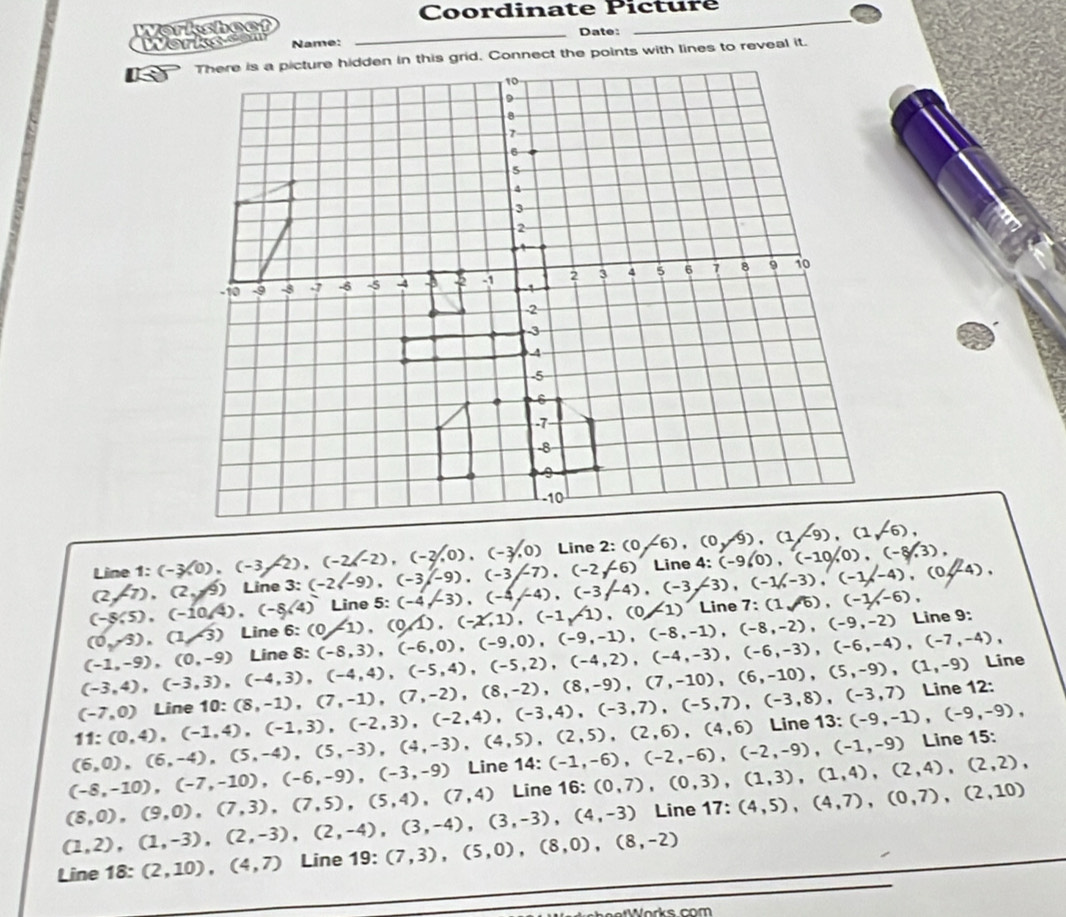 Coordinate Picture
Worksheet
Works.com
Name:
Date:
There is a picture hidden in this grid. Connect the points with lines to reveal it.
10
9
8
7
6
5
4
3
2
1
-10 -9 -8 -7 -6 -5 -4 -3 -2 -1 2 3 4 5 6 7 8 9 10
-1
-2
-3
-4
-5
-6
-7
-8
-9
-10
Line 1: (-3,0), (-3,-2), (-2,-2), (-2,0), (-3,0) Line 2: (0,-6), (0,-9), (1,-9), (1,-6),
(2,-7), (2,-9) Line 3: (-2,-9), (-3,-9), (-3,-7), (-2,-6) Line 4: (-9,0), (-10,0), (-8,3),
(-8,5), (-10,4), (-8,4) Line 5: (-4,-3), (-4,-4), (-3,-4), (-3,-3), (-1,-3), (-1,-4), (0,-4),
(0,-3), (1,-3) Line 6: (0,-1), (0,1), (-1,1), (-1,-1), (0,-1) Line 7: (1,-6), (-1,-6),
(-1,-9), (0,-9) Line 8: (-8,3), (-6,0), (-9,0), (-9,-1), (-8,-1), (-8,-2), (-9,-2) Line 9:
(-3,4), (-3,3), (-4,3), (-4,4), (-5,4), (-5,2), (-4,2), (-4,-3), (-6,-3), (-6,-4), (-7,-4),
(-7,0) Line 10: (8,-1), (7,-1), (7,-2), (8,-2), (8,-9), (7,-10), (6,-10), (5,-9), (1,-9) Line
11: (0,4), (-1,4), (-1,3), (-2,3), (-2,4), (-3,4), (-3,7), (-5,7), (-3,8), (-3,7) Line 12:
(6,0), (6,-4), (5,-4), (5,-3), (4,-3), (4,5), (2,5), (2,6), (4,6) Line 13: (-9,-1), (-9,-9),
(-8,-10), (-7,-10), (-6,-9), (-3,-9) Line 14: (-1,-6), (-2,-6), (-2,-9), (-1,-9) Line 15:
(8,0), (9,0), (7,3), (7,5), (5,4), (7,4) Line 16: (0,7), (0,3), (1,3), (1,4), (2,4), (2,2),
(1,2), (1,-3), (2,-3), (2,-4), (3,-4), (3,-3), (4,-3) Line 17: (4,5), (4,7), (0,7), (2,10)
Line 18: (2,10), (4,7) Line 19: (7,3), (5,0), (8,0), (8,-2)